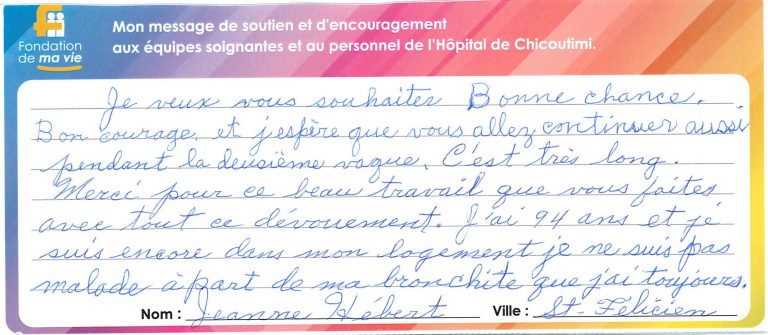 Fondation
de ma vie
Mon message de soutien et d'encouragement
aux équipes soignantes et au personnel de l'Hôpital de Chicoutimi.
Je veux vous souhaiter Bonne chance.
Bon courage, et j'espère que vous allez continuer aussi
pendant la deusième vague. C'est très long.
Merci pour ce beau travail que vous faites
avec tout ce dévouement. J'ai 94 ans et je
suis encore dans mon logement je ne suis pas
malade à part de ma bronchite que j'ai toujours.
Nom : Jeanne Hébert Ville : St-Félicien